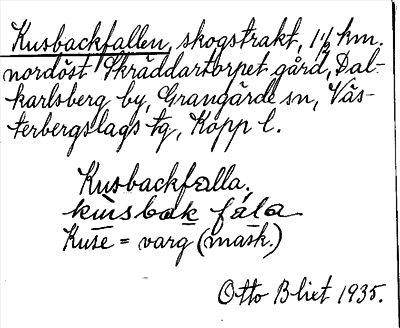 Kusbackfallen, skogstrakt, 1½ km.
nordöst Skräddartorpet gård, Dal-
karlsberg by, Grangärde sn, Väs-
terbergslags tg, Kopp l.
Kusbackfalla.
kusbak fala
Kuse = varg (mask.)
Otto Blixt 1935.